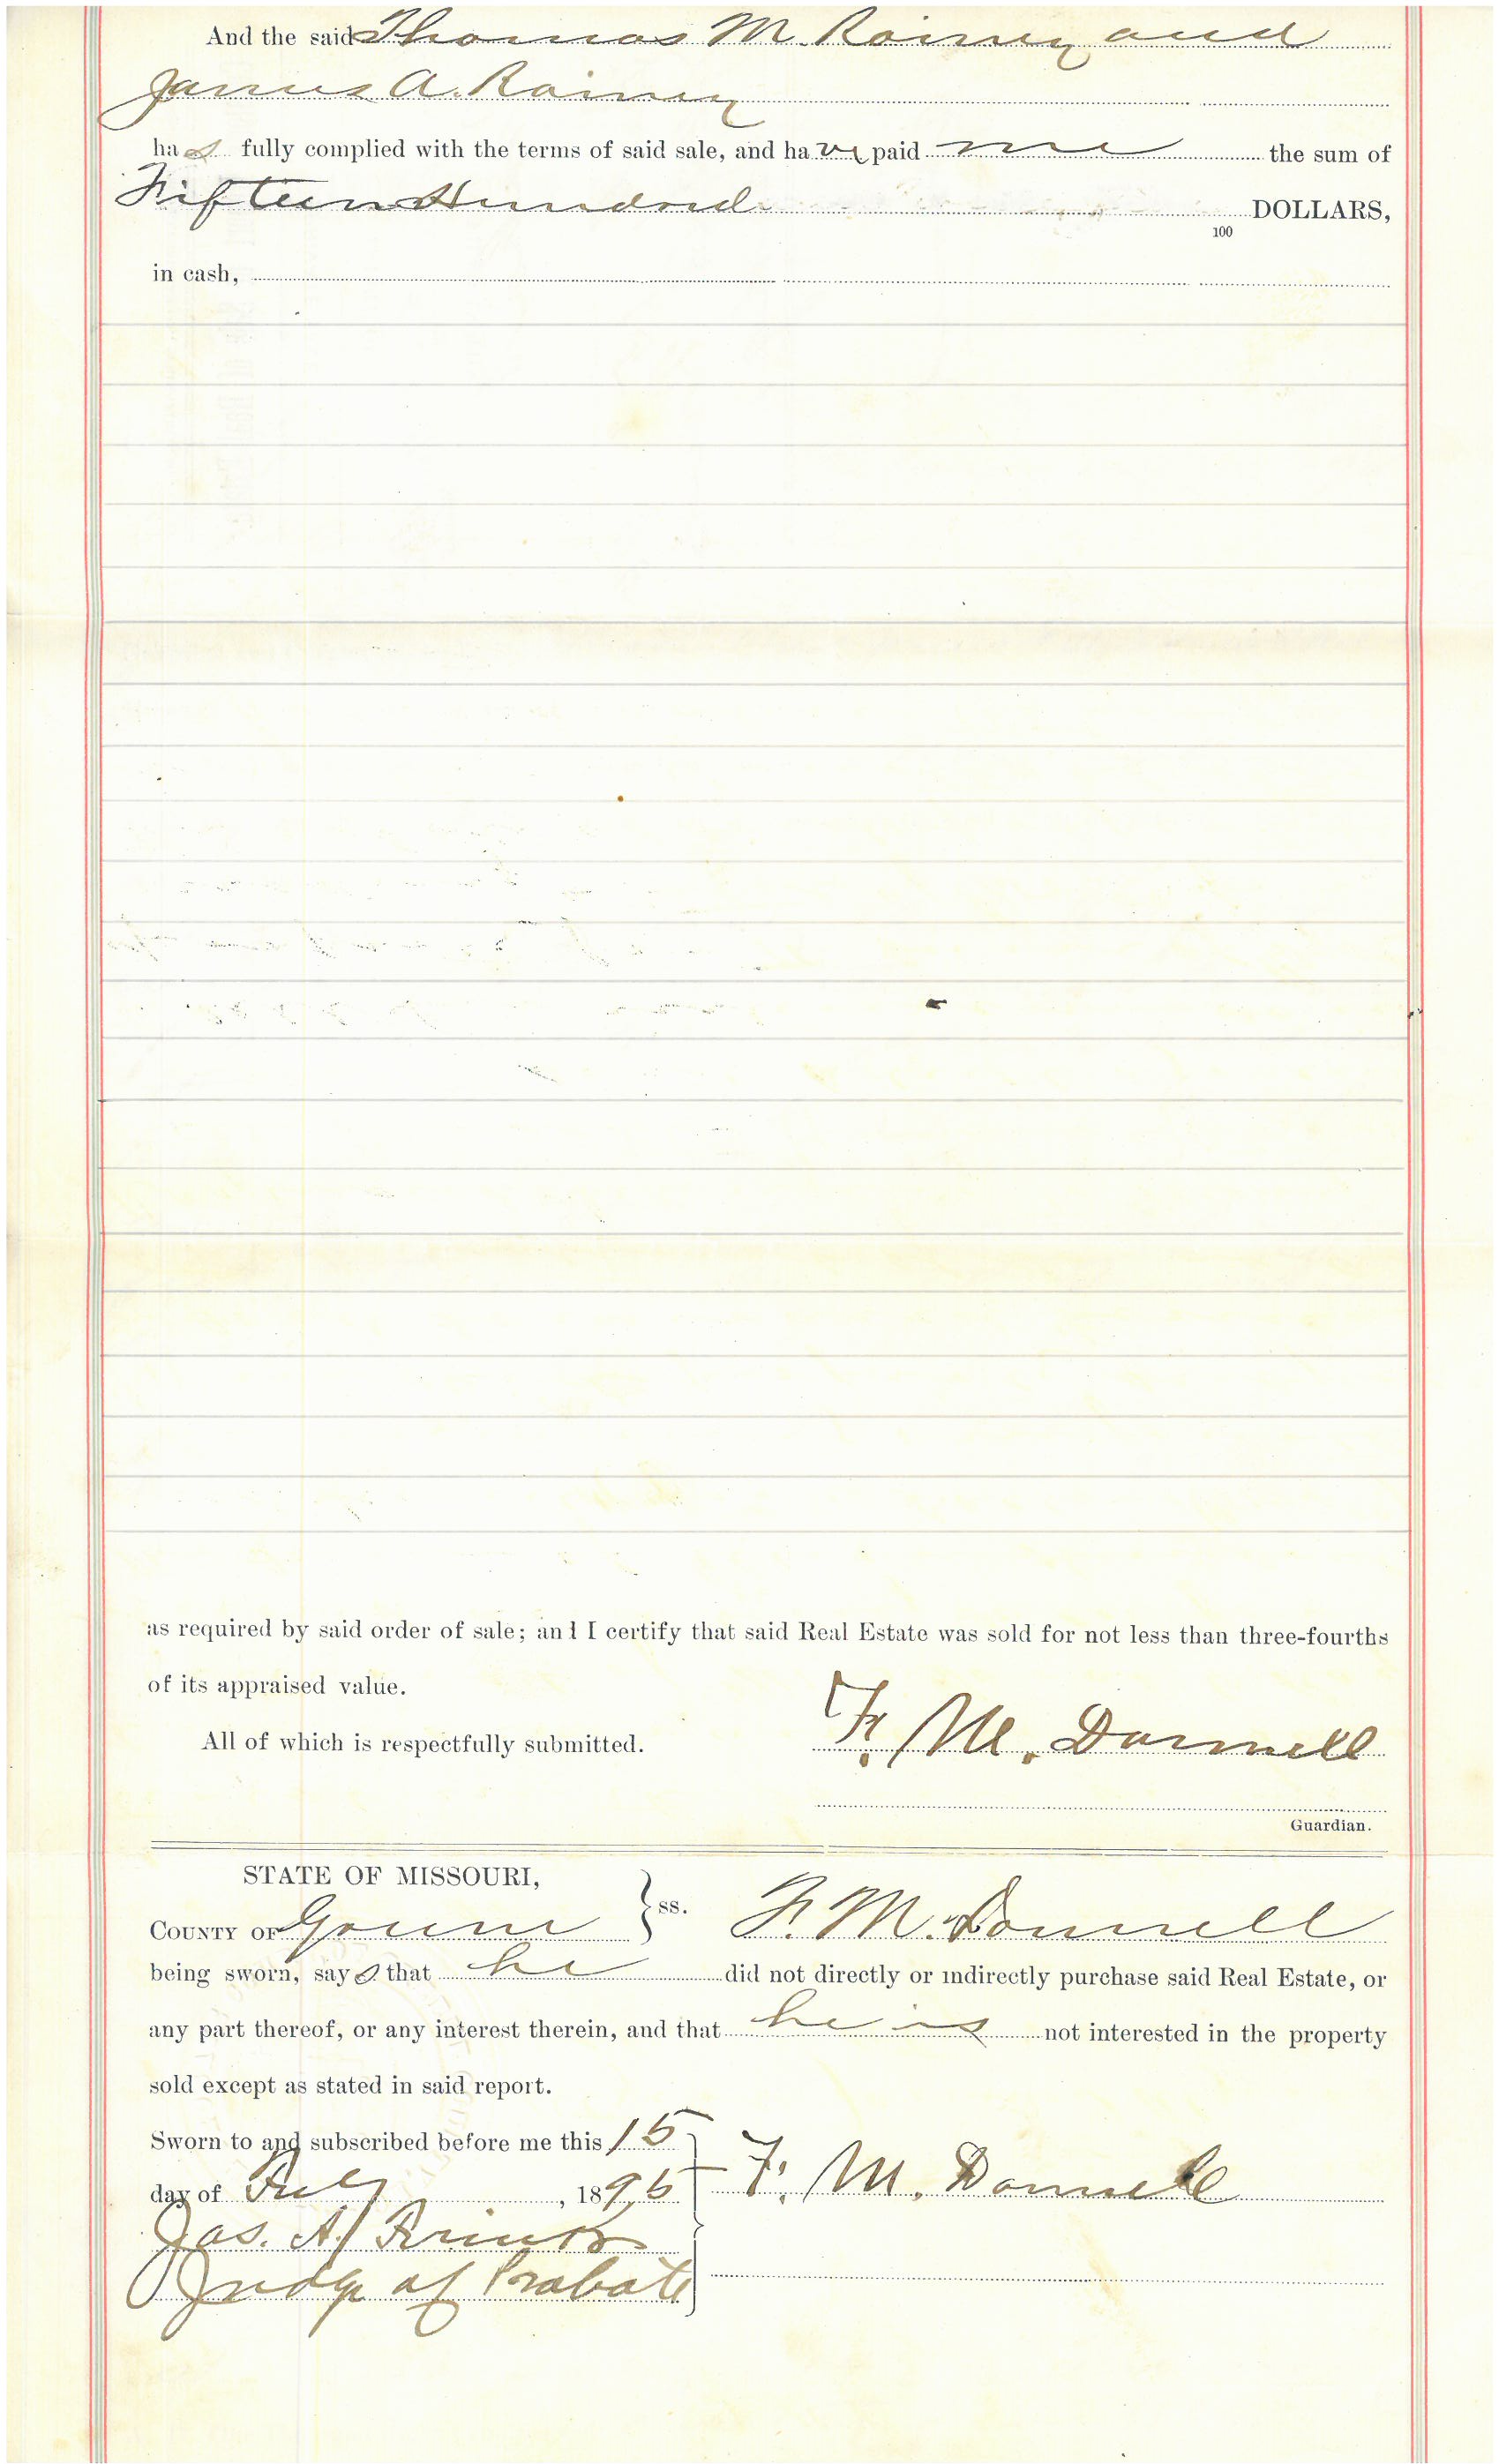 And the said Thomas M. Rainey and
James A. Rainey
has fully complied with the terms of said sale, and have paid me the sum of
Fifteen Hundred DOLLARS,
100
in cash,
as required by said order of sale; and I certify that said Real Estate was sold for not less than three-fourths
of its appraised value.
All of which is respectfully submitted.
F. M. Donnell
Guardian.
STATE OF MISSOURI,
COUNTY OF Greene } ss. F. M. Donnell
being sworn, says that he did not directly or indirectly purchase said Real Estate, or
any part thereof, or any interest therein, and that he is not interested in the property
sold except as stated in said report.
Sworn to and subscribed before me this 15
day of July, 1896 F. M. Donnell
Jas. A.
Judge of Probate